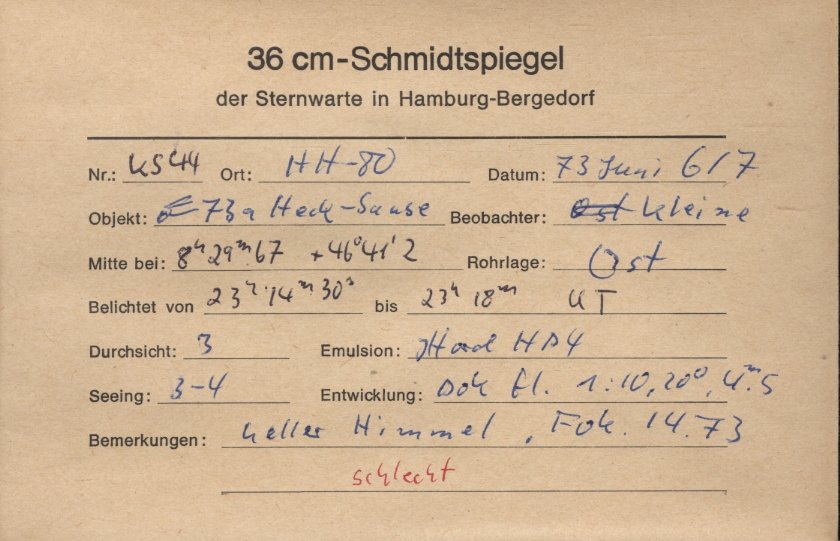 36 cm-Schmidtspiegel
der Sternwarte in Hamburg-Bergedorf
Nr.: KS44 Ort: HH-80 Datum: 73 Juni 6/7
Objekt: 73a Heck-Sause Beobachter: Ost Kleine
Mitte bei: 8h 29m.67 +46°41'2 Rohrlage: Ost
Belichtet von 23h 14m 30s bis 23h 18m UT
Durchsicht: 3 Emulsion: HD4
Seeing: 3-4 Entwicklung: Dok fl. 1:10, 20°, 4m.5
Bemerkungen: heller Himmel, Fok. 14.73
schlecht